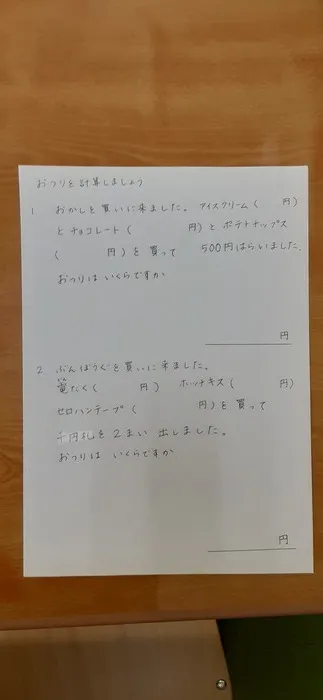 おつりを計算しましょう
1 おかしを買いに来ました。アイスクリーム( 円)
とチョコレート( 円)とポテトチップス
( 円)を買って 500円はらいました。
おつりはいくらですか
円
2 ぶんぼうぐを買いに来ました。
電たく( 円) ホッチキス( 円)
セロハンテープ( 円)を買って
千円札を2まい出しました。
おつりは いくらですか
円